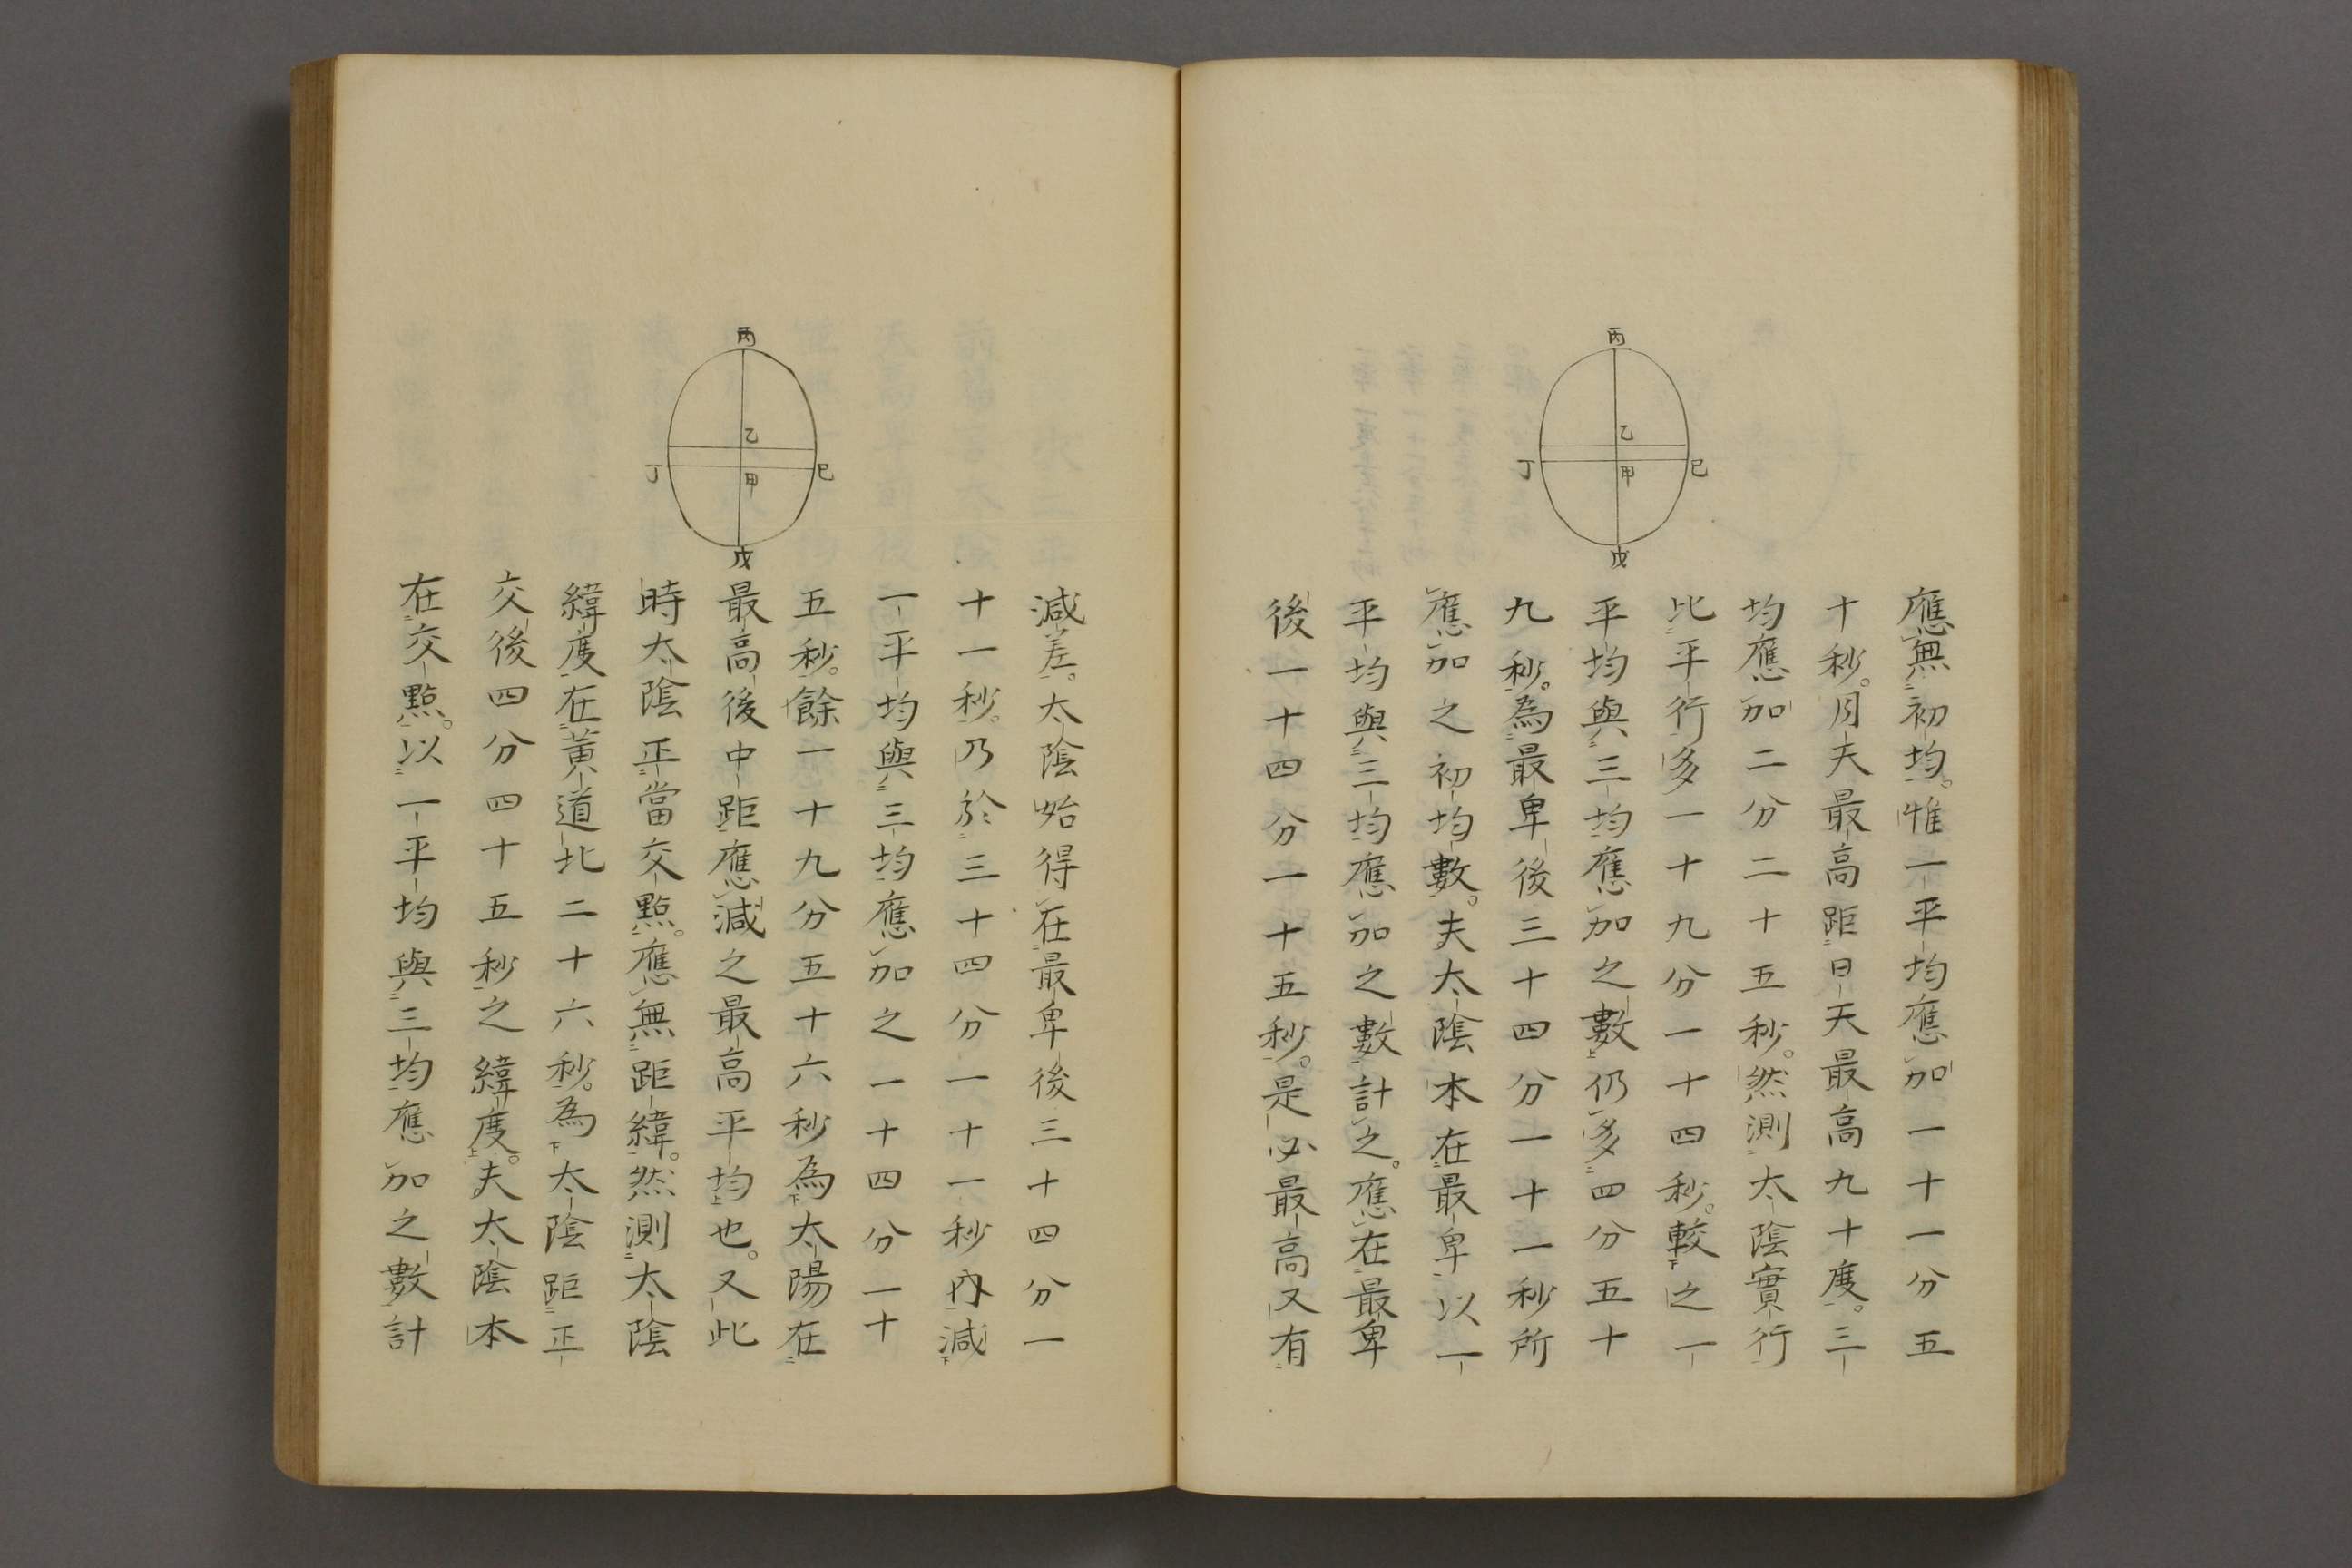 丙
乙
甲
丁
巳
戊
應無初均。惟一平均應加一十一分五
十秒。月天最高距日天最高九十度。三
均應加二分二十五秒。然測太陰實行
比平行多一十九分一十四秒。較之一
平均與三均應加之數仍多四分五十
九秒。為最卑後三十四分一十一秒所
應加之初均數。夫太陰本在最卑以一
平均與三均應加之數計之。應在最卑
後一十四分一十五秒。是必最高又有
丙
乙
甲
丁
巳
戊
減差。太陰始得在最卑後三十四分一
十一秒。乃於三十四分一十一秒內減
一平均與三均應加之一十四分一十
五秒。餘一十九分五十六秒為太陽在
最高後中距應減之最高平均也。又此
時太陰正當交點。應無距緯。然測太陰
緯度在黃道北二十六秒。為太陰距正
交後四分四十五秒之緯度。夫太陰本
在交點。以一平均與三均應加之數計